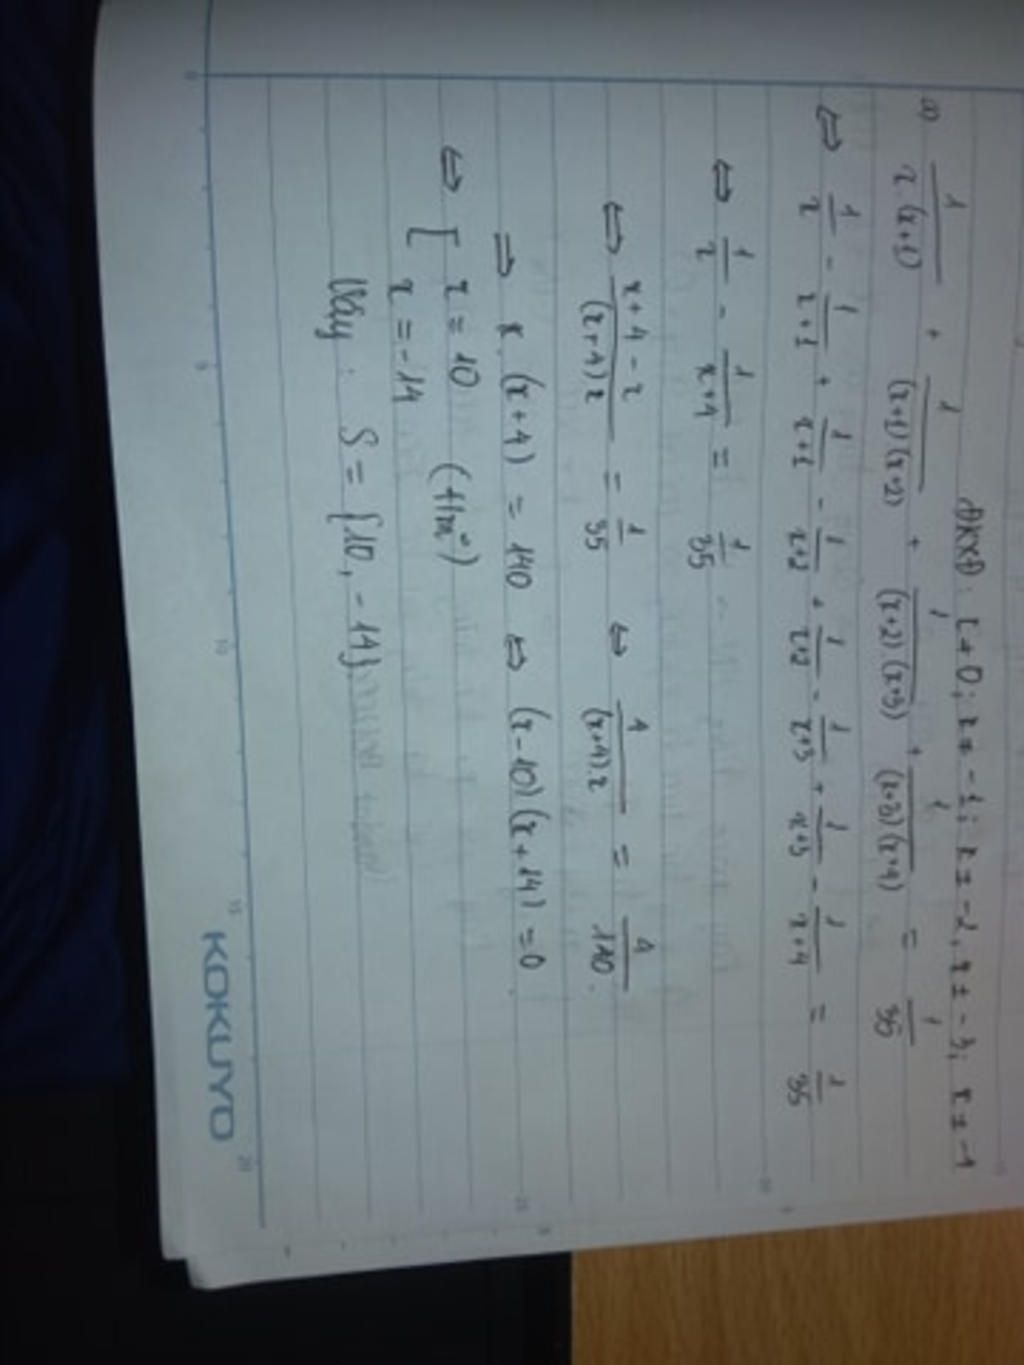 ĐKXĐ: x ≠ 0; x ≠ -1; x ≠ -2, x ≠ -3; x ≠ -4
a) 1/x(x+1) + 1/(x+1)(x+2) + 1/(x+2)(x+3) + 1/(x+3)(x+4) = 1/35
⇔ 1/x - 1/x+1 + 1/x+1 - 1/x+2 + 1/x+2 - 1/x+3 + 1/x+3 - 1/x+4 = 1/35
⇔ 1/x - 1/x+4 = 1/35
⇔ x+4-x/(x+4)x = 1/35 ⇔ 4/(x+4).x = 4/140
⇒ x.(x+4) = 140 ⇔ (x-10)(x+14) = 0
⇔ [ x = 10
x = -14 (t/m)
Vậy: S = {10, -14}
KOKUYO